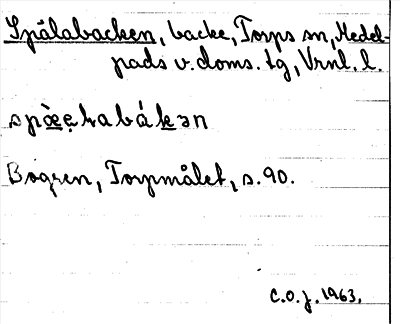 Spålabacken, backe, Torps sn, Medel-
pads v. doms. tg, Vrnl. l.
Bogren, Torpmålet, s. 90.
C.O.J. 1963.